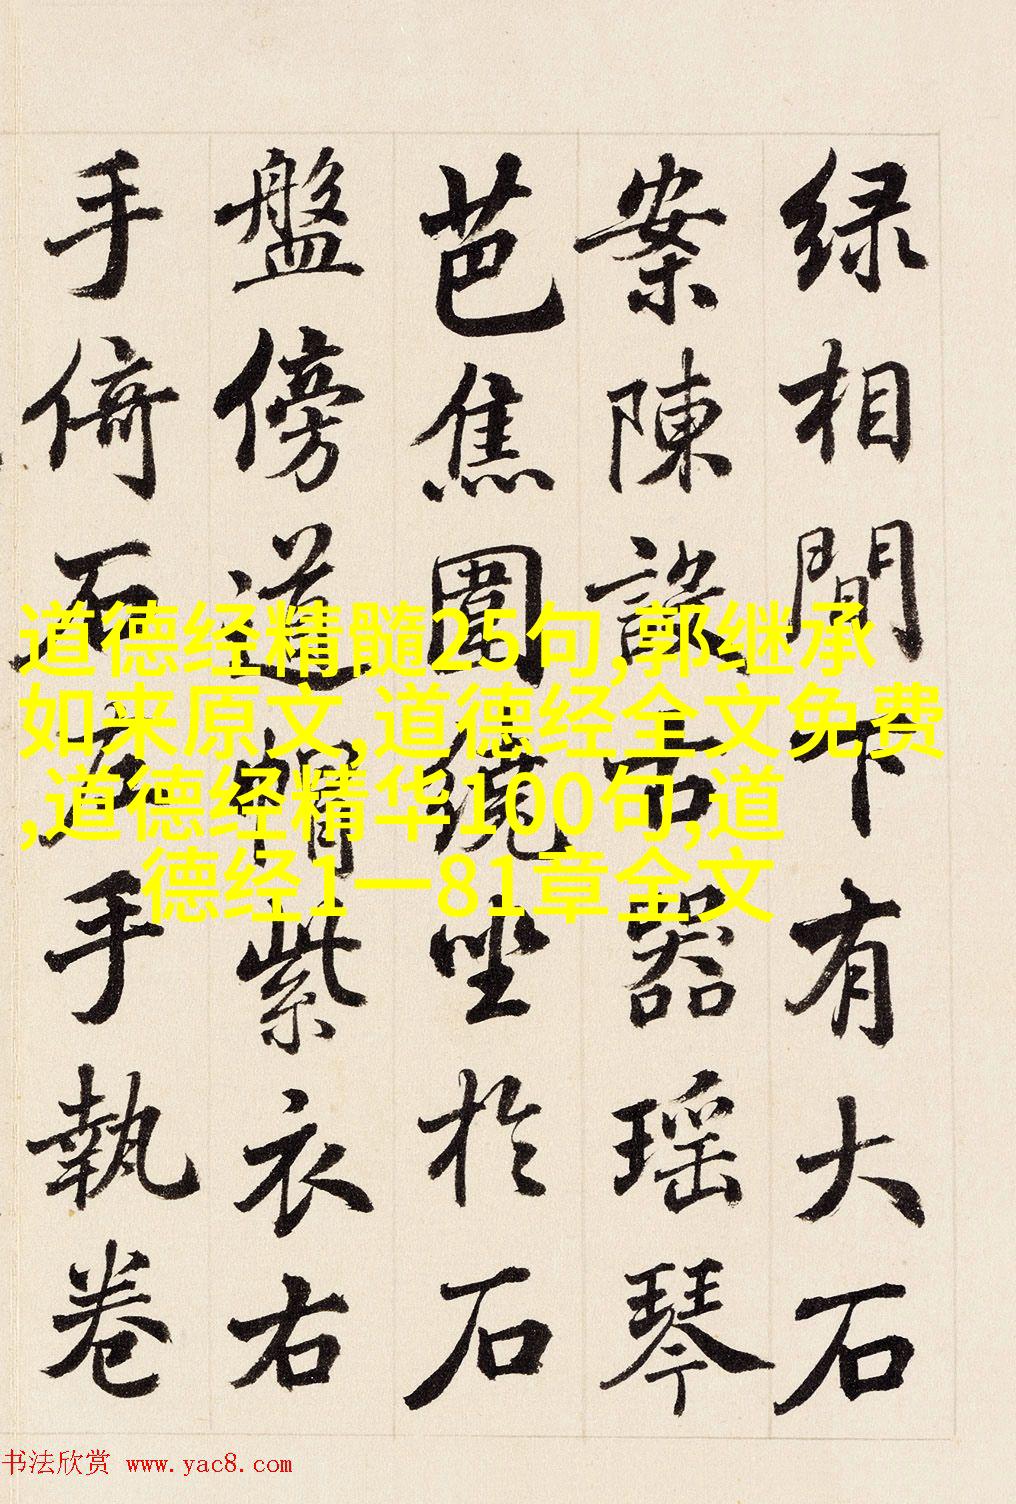 绿相間下有大石
案陳設古器瑶琴
芭焦圍繞坐於石
盤傍道帽紫衣右
手倚石左手執卷
道德经精髓25句,郭继承
如来原文,道德经全文免费
,道德经精华100句,道
德经1一81章全文
书法欣赏 www.yac8.com